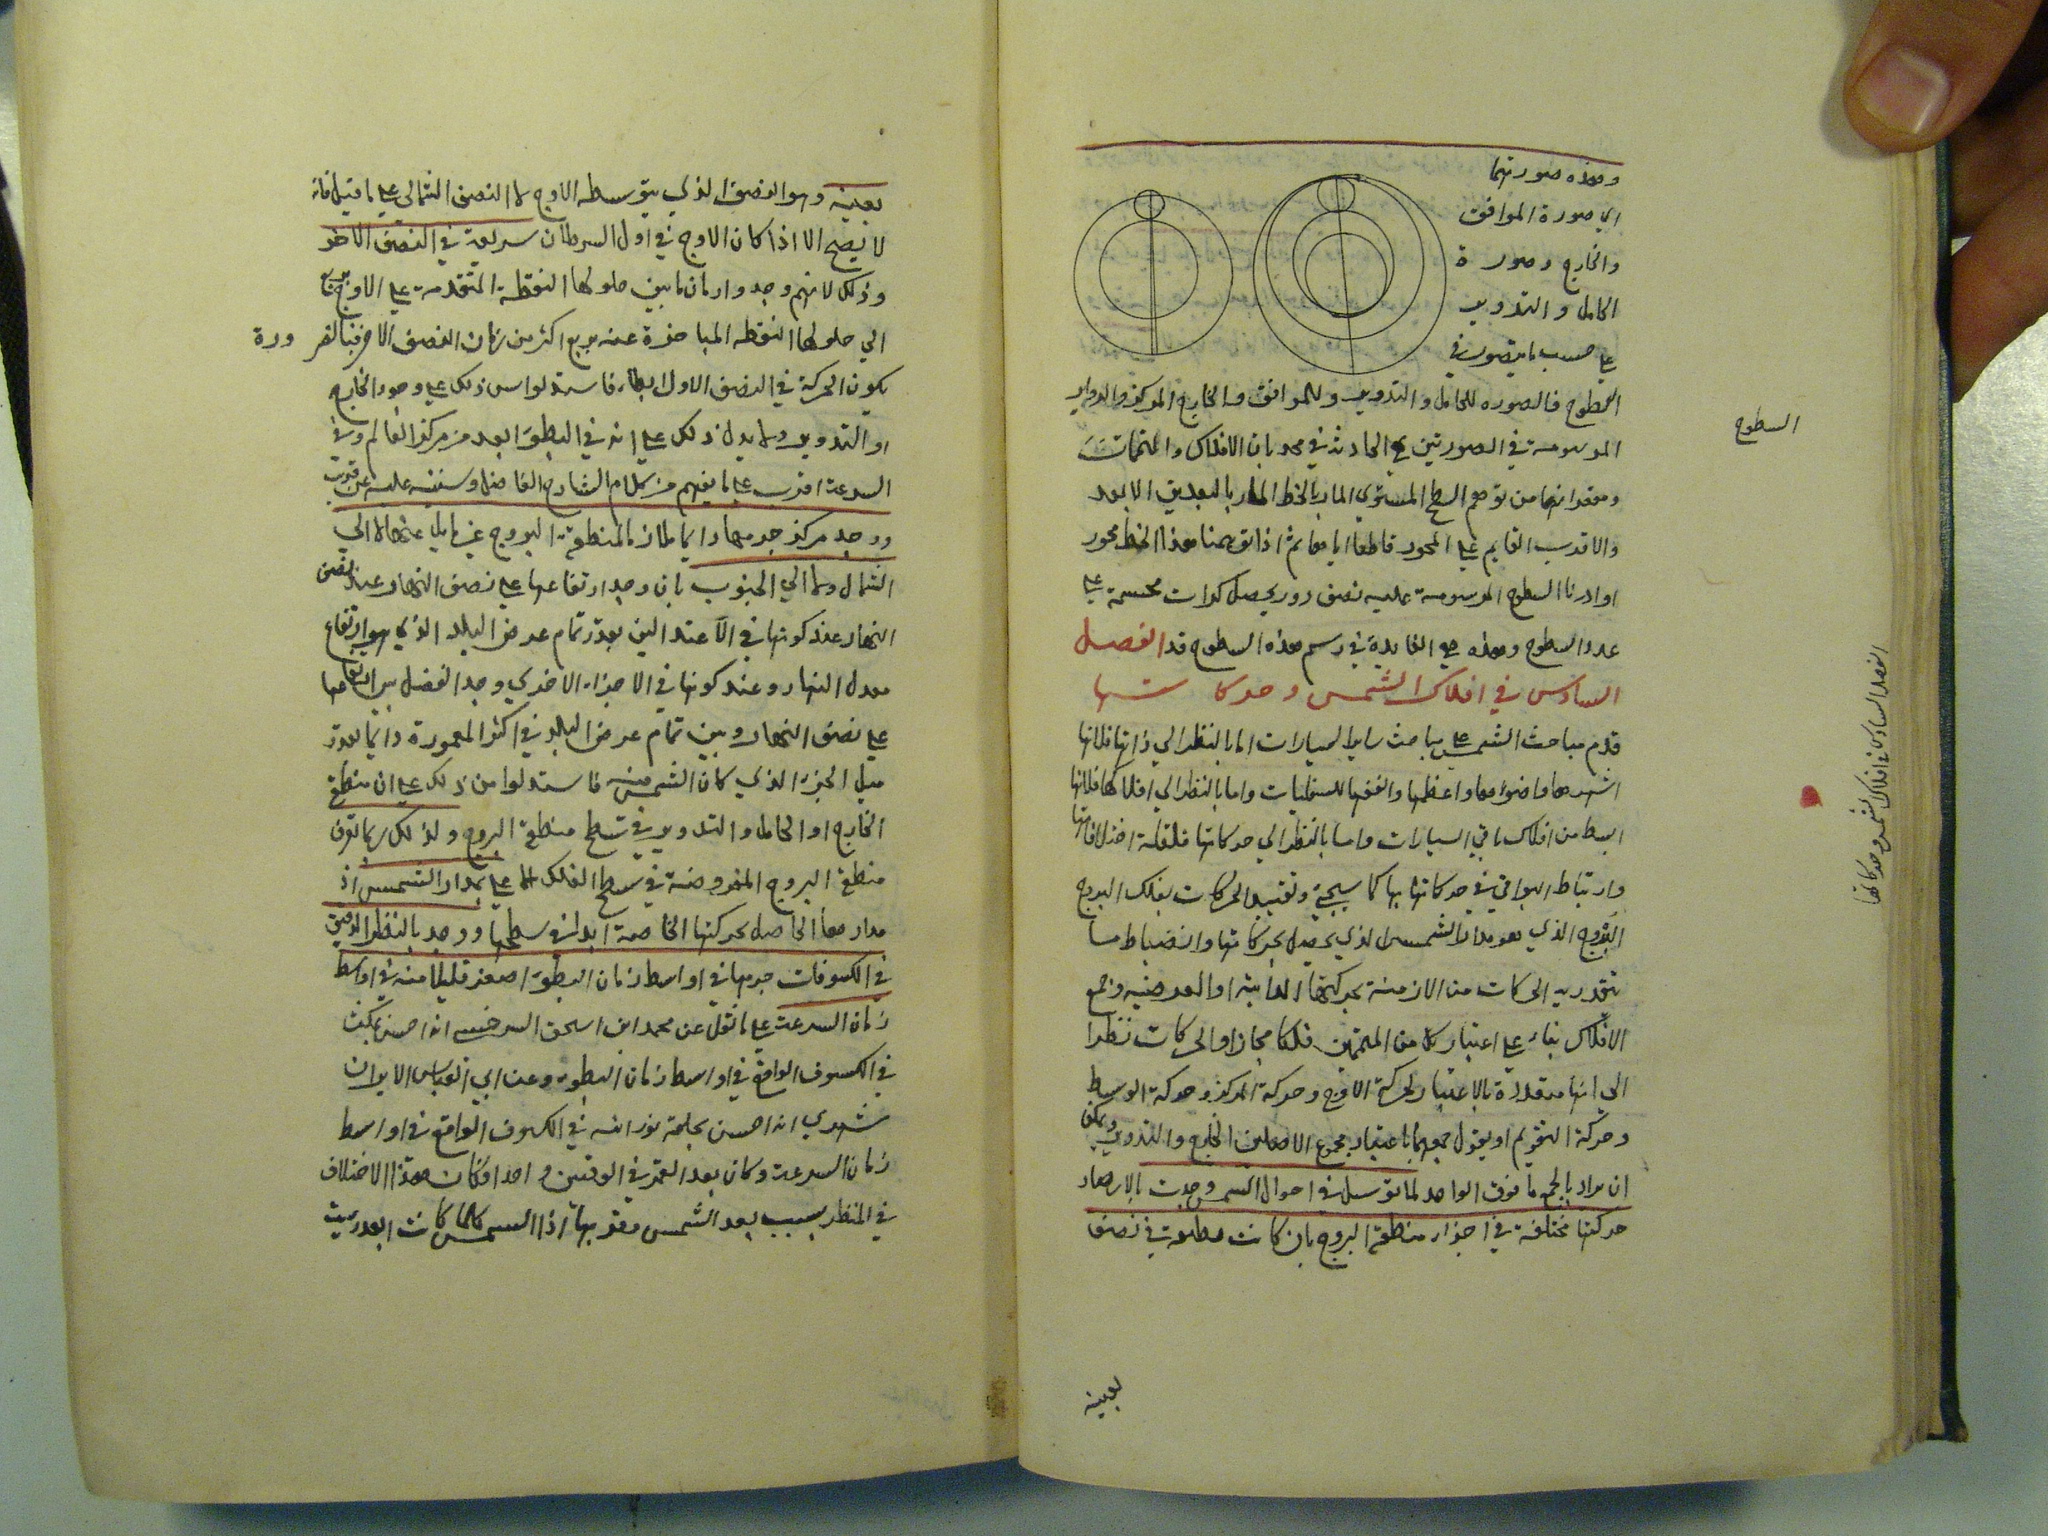 وهذه صورتهما
اي صورة الموافق
والخارج وصورة
الحامل والتدوير
على حسب ما يتصور في
السطوح فالصورة للحامل والتدوير وللموافق والخارج المركز والدواير
السطوح
المرسومة في الصورتين هي الحادثة في محدبات الافلاك والمتممات
ومقعراتها من توهم السطح المستوي المار بالخط المار بالبعدين الابعد
والاقرب القايم على المحور قاطعا اياها ثم اذا توهمنا هذا الخط محور
او ادرنا السطوح المرسومة عليه نصف دور يحصل كرات مجسمة على
عدد السطوح وهذه هي الفايدة في رسم هذه السطوح قد الفصل
السادس في افلاك الشمس وحركاتها
الفصل السادس في افلاك الشمس وحركاتها
قدم مباحث الشمس على مباحث ساير السيارات اما بالنظر الي ذاتها فلانها
اشهرها واضواها واعظمها وانفعها للسفليات واما بالنظر الي افلاكها فلانها
ابسط من افلاك باقي السيارات واما بالنظر الي حركاتها فلقلة اختلافاتها
وارتباط البواقي في حركاتها بها كما سيجيء وتقييد الحركات بفلك البروج
البروج الذي هو مدار الشمس الذي يحصل بحركاتها وانضباط ما
يتقدر به الحركات من الازمنة بحركتها الذاتية او العرضية وجمع
الافلاك بناء على اعتبار كل من المتممين فلكا مجازا والحركات نظرا
الي انها متعددة بالاعتبار لحركة الاوج وحركة المركز وحركة الوسط
وحركة التقويم او يقول جمعهما باعتبار مجموع الاصلين الخارج والتدوير ويمكن
ان يراد بالجمع ما فوق الواحد لما توسل في احوال الشمس وجدت بالارصاد
حركتها مختلفة في اجزاء منطقة البروج بان كانت بطيئة في نصف
بعينه
بعينه وهو النصف الذي يتوسطه الاوج لا النصف الشمالي على ما قيل فانه
لا يصح الا اذا كان الاوج في اول السرطان سريعة في النصف الاخر
وذلك لانهم وجدوا زمان ما بين حلولها النقطة المتقدمة على الاوج بربع
الي حلولها النقطة المتاخرة عنه بربع اكثر من زمان النصف الاخر فبالضرورة
يكون الحركة في النصف الاول ابطاء فاستدلوا من ذلك على وجود الخارج
او التدوير وما يدل ذلك على انه في البطؤ ابعد من مركز العالم وفي
السرعة اقرب على ما يفهم من كلام الشارح الفاضل وسننبه عليه عن قريب
ووجد مركز جرمها دايما ملازما لمنطقة البروج غير مايل عنها لا الي
الشمال ولا الي الجنوب بان وجد ارتفاعها على نصف النهار عند نصف
النهار عند كونها في الاعتدالين بقدر تمام عرض البلد الذي هو ارتفاع
معدل النهار وعند كونها في الاجزاء الاخري وجد الفضل بين ارتفاعها
على نصف النهار وبين تمام عرض البلد في اكثر المعمورة دايما بقدر
ميل الجزء الذي كان الشمس فيه فاستدلوا من ذلك على ان منطقة
الخارج او الحامل والتدوير في سطح منطقة البروج ولذلك ربما تعرف
منطقة البروج المفروضة في سطح الفلك الاعلى بمدار الشمس اذ
مدارها الحاصل بحركتها الخاصة ابدا في سطحها ووجد بالنظر الدقيق
في الكسوفات جرمها في اواسط زمان البطؤ اصغر قليلا منه في اواسط
زمان السرعة على ما نقل عن محمد ابن اسحق السرخسي انه احس بمكث
في الكسوف الواقع في اواسط زمان البطؤ وعن ابي العباس الايران
شهري انه احس بحلقة نورانية في الكسوف الواقع في اواسط
زمان السرعة وكان بعد القمر في الوقتين واحدا وكان هذا الاختلاف
في المنظر بسبب بعد الشمس وقربها اذ الشمس كلما كانت ابعد ريت